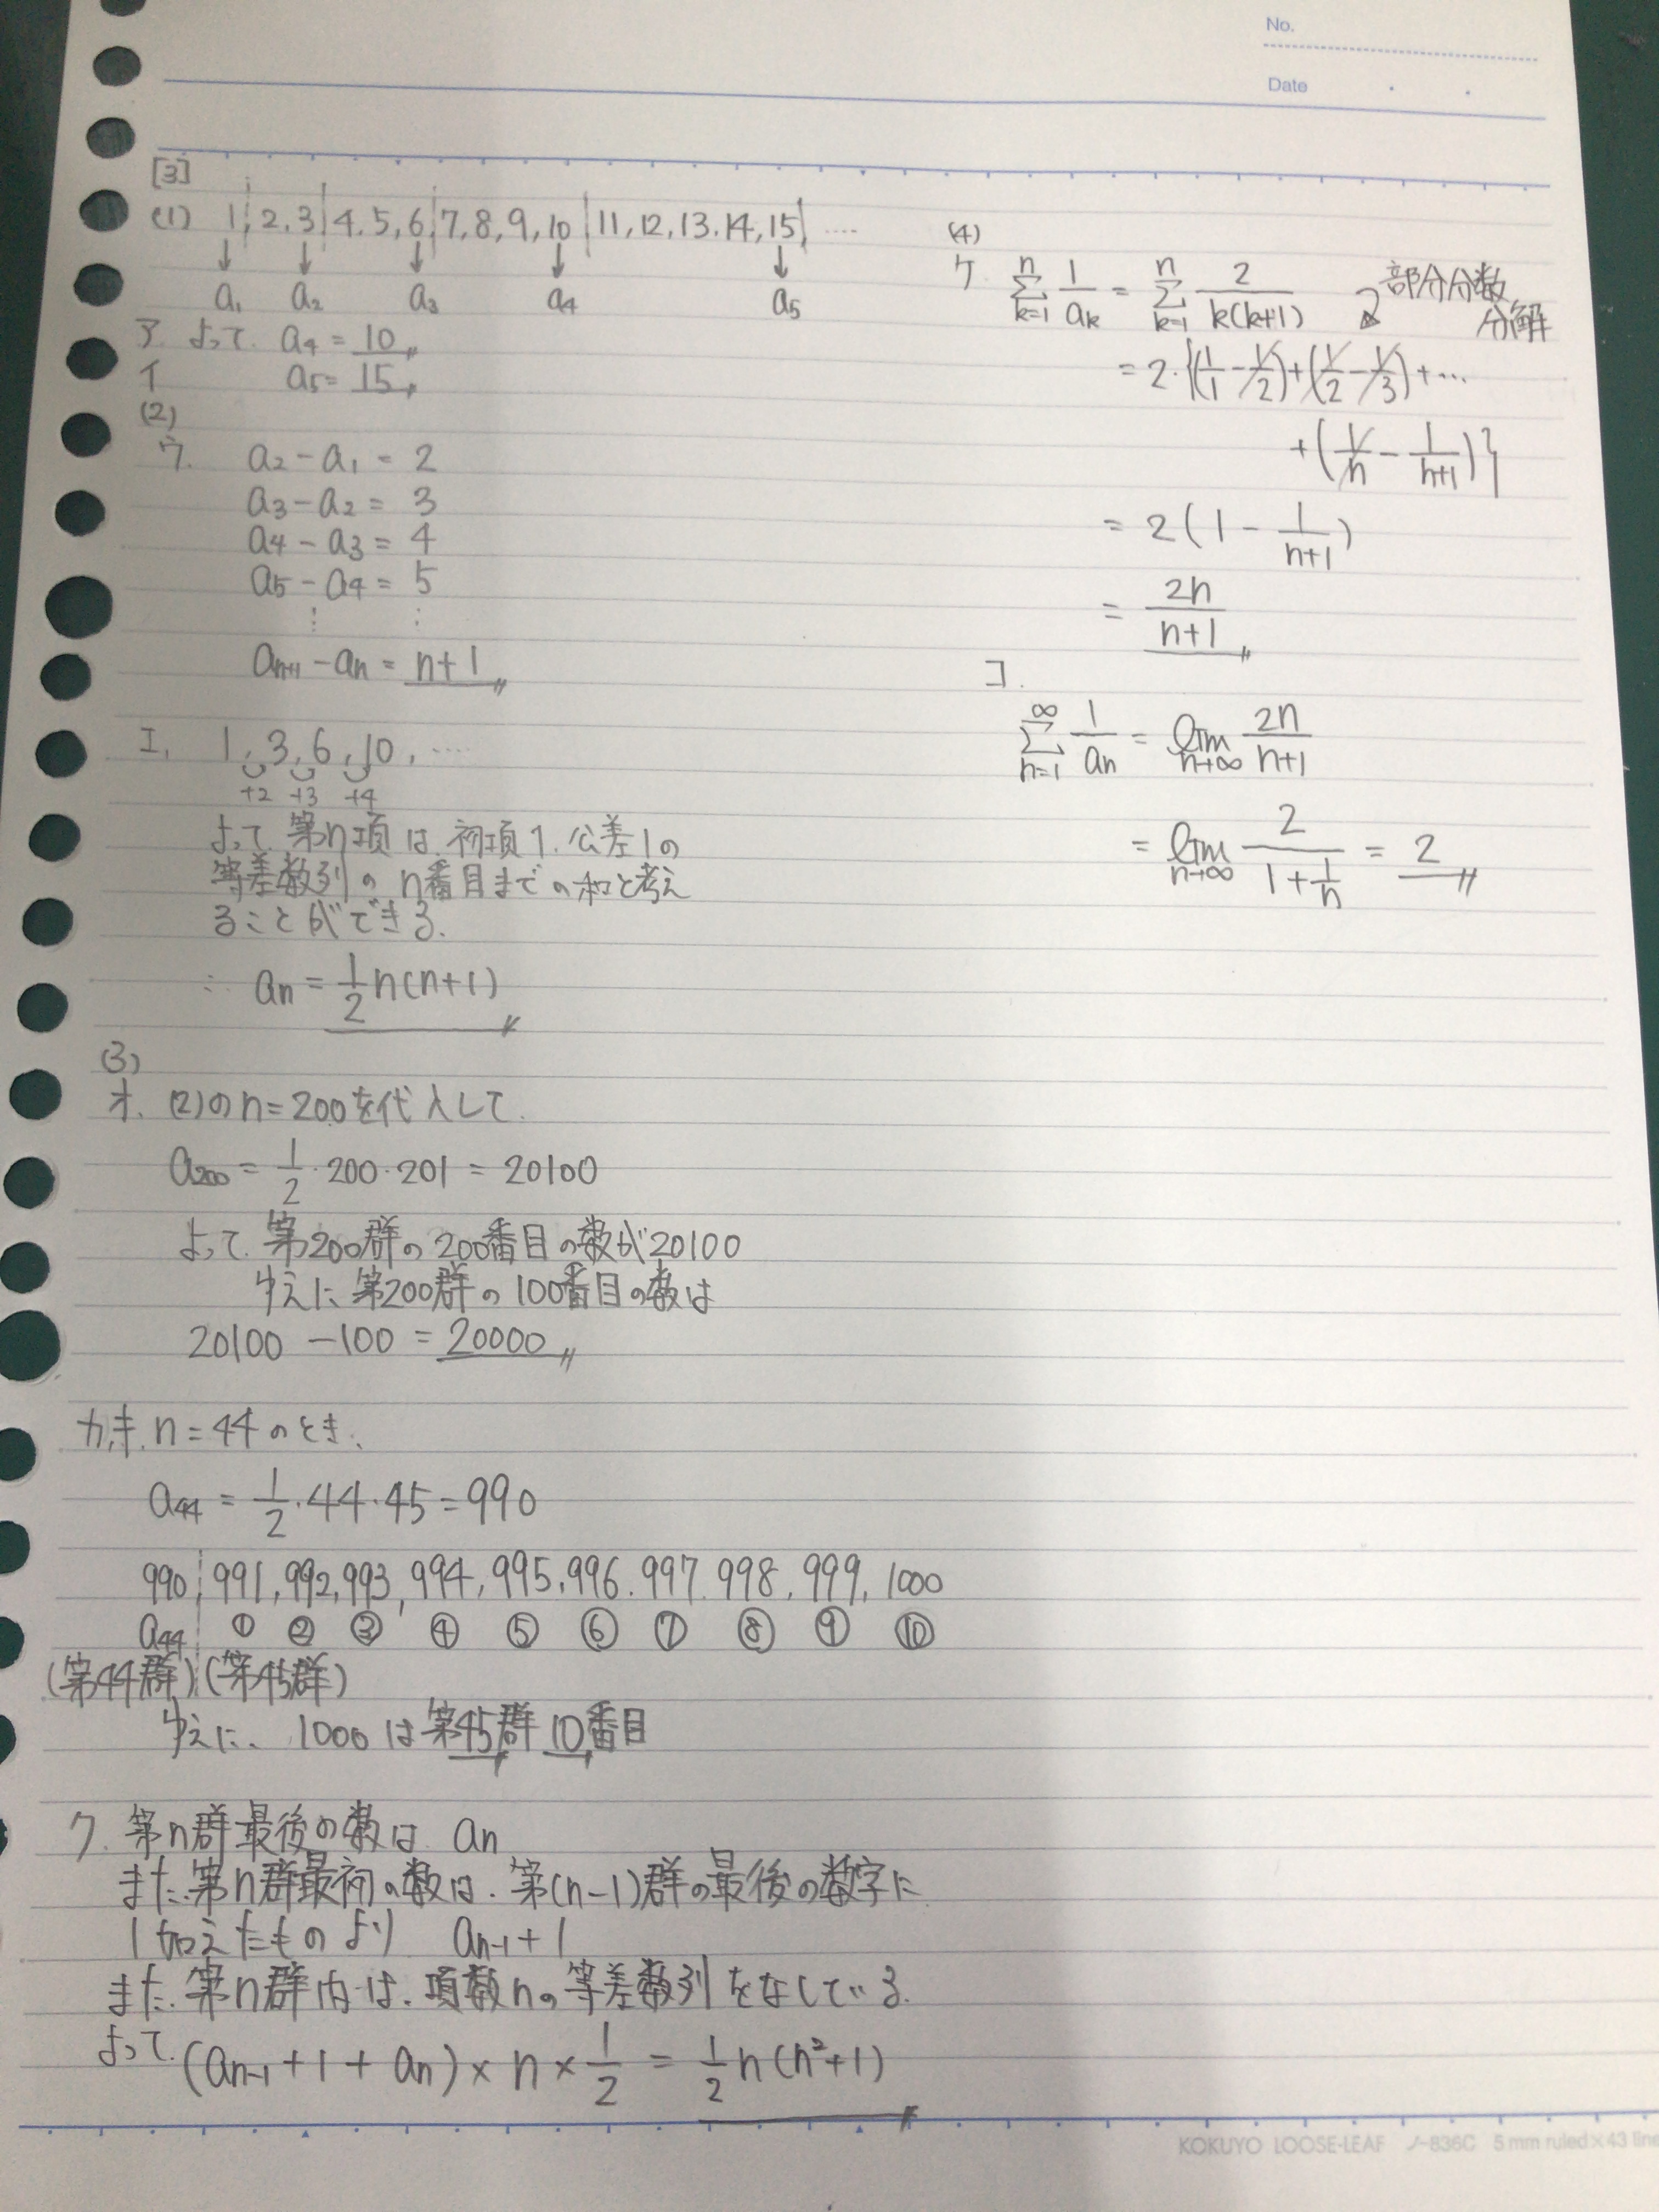 No.
Date
[3]
(1) 1, 2, 3, 4, 5, 6, 7, 8, 9, 10, 11, 12, 13, 14, 15, ‥‥
↓ ↓ ↓ ↓ ↓
a₁ a₂ a₃ a₄ a₅
ア. よって. a₄ = 10
イ a₅ = 15
(2)
ウ. a₂ - a₁ = 2
a₃ - a₂ = 3
a₄ - a₃ = 4
a₅ - a₄ = 5
⋮ ⋮
aₙ₊₁ - aₙ = n+1
エ. 1, 3, 6, 10, ‥‥
+2 +3 +4
よって 第n項は. 初項1. 公差1の
等差数列の n番目までの和と考え
ることができる.
∴ aₙ = 1/2 n(n+1)
(3)
オ. (2)のn=200を代入して.
a₂₀₀ = 1/2・200・201 = 20100
よって. 第200群の200番目の数が20100
ゆえに 第200群の100番目の数は
20100 - 100 = 20000
カ,キ. n=44のとき、
a₄₄ = 1/2・44・45 = 990
990, 991, 992, 993, 994, 995, 996, 997, 998, 999, 1000
a₄₄ ① ② ③ ④ ⑤ ⑥ ⑦ ⑧ ⑨ ⑩
(第44群) (第45群)
ゆえに、1000は第45群10番目
ク. 第n群最後の数は aₙ
また. 第n群最初の数は. 第(n-1)群の最後の数字に
1加えたものより aₙ₋₁+1
また. 第n群内は. 項数nの等差数列をなしている.
よって. (aₙ₋₁ + 1 + aₙ) × n × 1/2 = 1/2 n(n²+1)
(4)
ケ. Σ[k=1→n] 1/aₖ = Σ[k=1→n] 2/k(k+1) 部分分数
分解
= 2・{(1/1 - 1/2) + (1/2 - 1/3) + ‥‥
+ (1/n - 1/n+1)}
= 2(1 - 1/n+1)
= 2n/n+1
コ.
Σ[n=1→∞] 1/aₙ = lim[n→∞] 2n/n+1
= lim[n→∞] 2/(1+1/n) = 2
KOKUYO LOOSE-LEAF ノ-836C 5 mm ruled×43 line